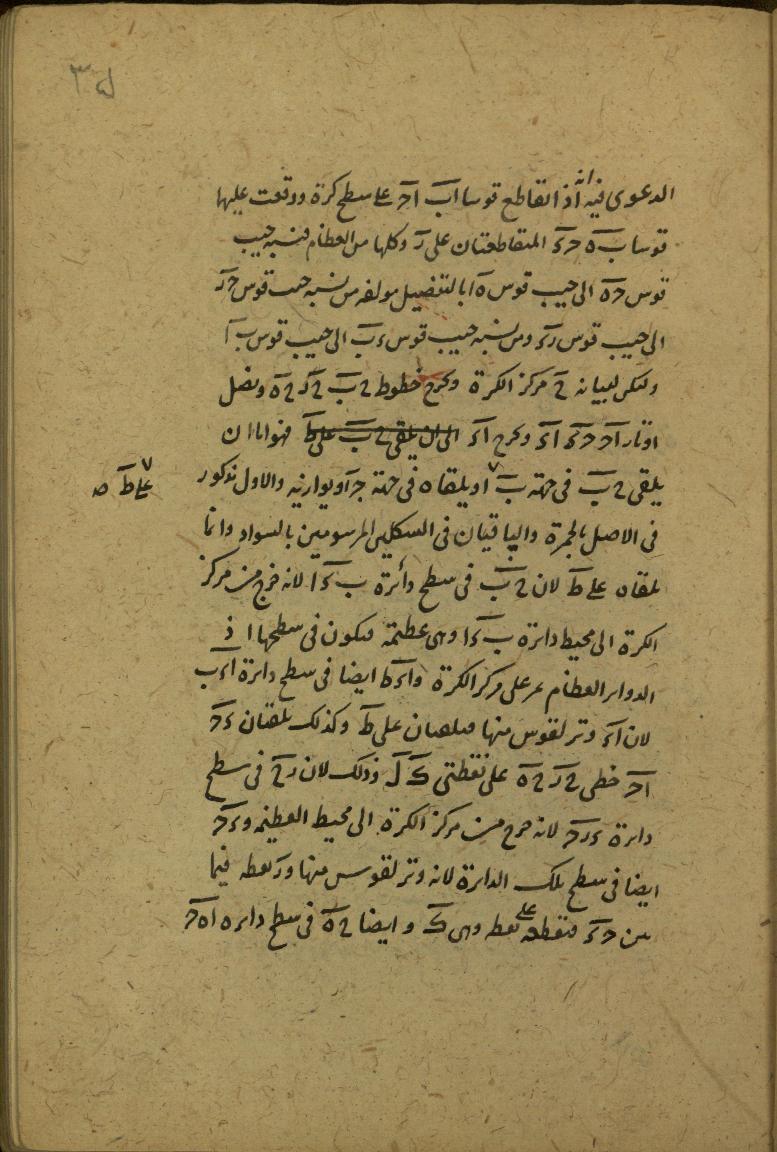 الدعوى فيه انه اذا تقاطع قوسا اب اح على سطح كرة ووقعت عليها
قوسا ب ه ح ء المتقاطعتان على ر وكلها من العظام فنسبة جيب
قوس ح ه الى جيب قوس ه ا بالتفصيل مولفه من نسبه جيب قوس ح ر
الى جيب قوس ر ء ومن نسبه جيب قوس ء ب الى جيب قوس ب ا
وليكن لبيانه ح مركز الكرة ونخرج خطوط ح ب ح ر ح ه ونصل
اوتار اح ح ء ا ء ونخرج ا ء الى ان يلقى ح ب على ط فهو اما ان
يلقى ح ب فى جهة ب او يلقاه فى جهة ح او يوازيه والاول مذكور
على ط صه
فى الاصل بالحمرة والباقيان فى الشكلين المرسومين بالسواد وانما
يلقاه على ط لان ح ب فى سطح دائرة ب ء ا لانه خرج من مركز
الكرة الى محيط دايرة ب ء ا وهى عظيمة فيكون فى سطحها اذ
الدواير العظام تمر على مركز الكرة و ا ء ط ايضا فى سطح دايرة ا ء ب
لان ا ء وتر لقوس منها فيلتقيان على ط وكذلك يلقيان ء ح
اح خطى ح ر ح ه على نقطتى ك ل وذلك لان ر ح فى سطح
دايرة ء ر ح لانه خرج من مركز الكرة الى محيط العظيمه و ء ح
ايضا فى سطح تلك الدايرة لانه وتر لقوس منها و ر نقطه فيما
بين ح ء فيقطعه على نقطه وهى ك و ايضا ح ه فى سطح دايره ا ه ح